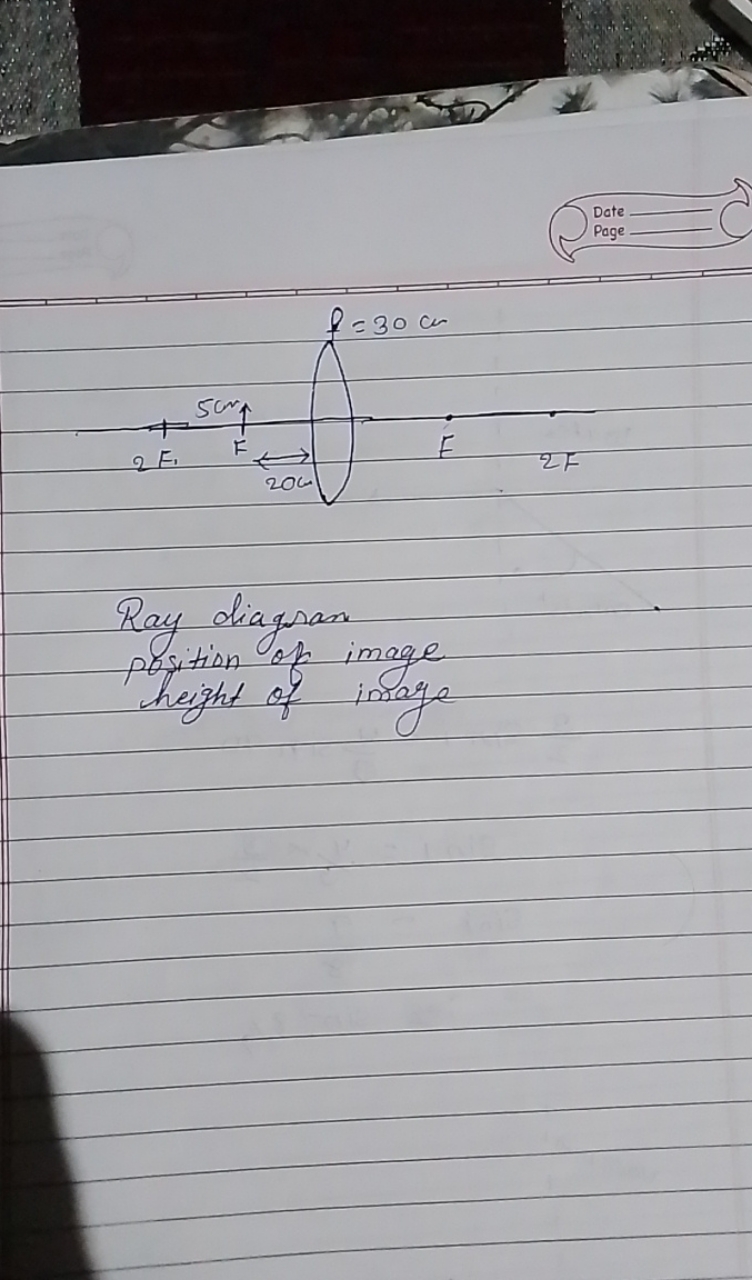 Date
Page
f = 30 cm
5cm
2 F1 F F 2F
20cm
Ray diagram
position of image
height of image